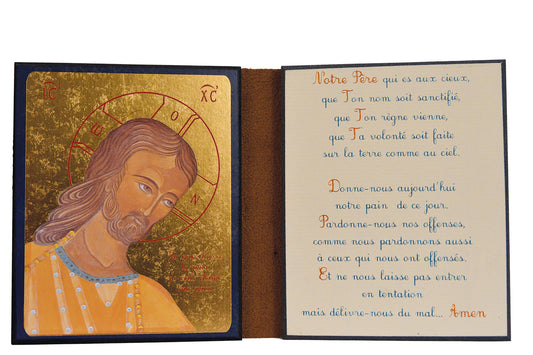 IC XC
O N
Notre Père qui es aux cieux,
que Ton nom soit sanctifié,
que Ton règne vienne,
que Ta volonté soit faite
sur la terre comme au ciel.
Donne-nous aujourd'hui
notre pain de ce jour.
Pardonne-nous nos offenses,
comme nous pardonnons aussi
à ceux qui nous ont offensés.
Et ne nous laisse pas entrer
en tentation
mais délivre-nous du mal... Amen